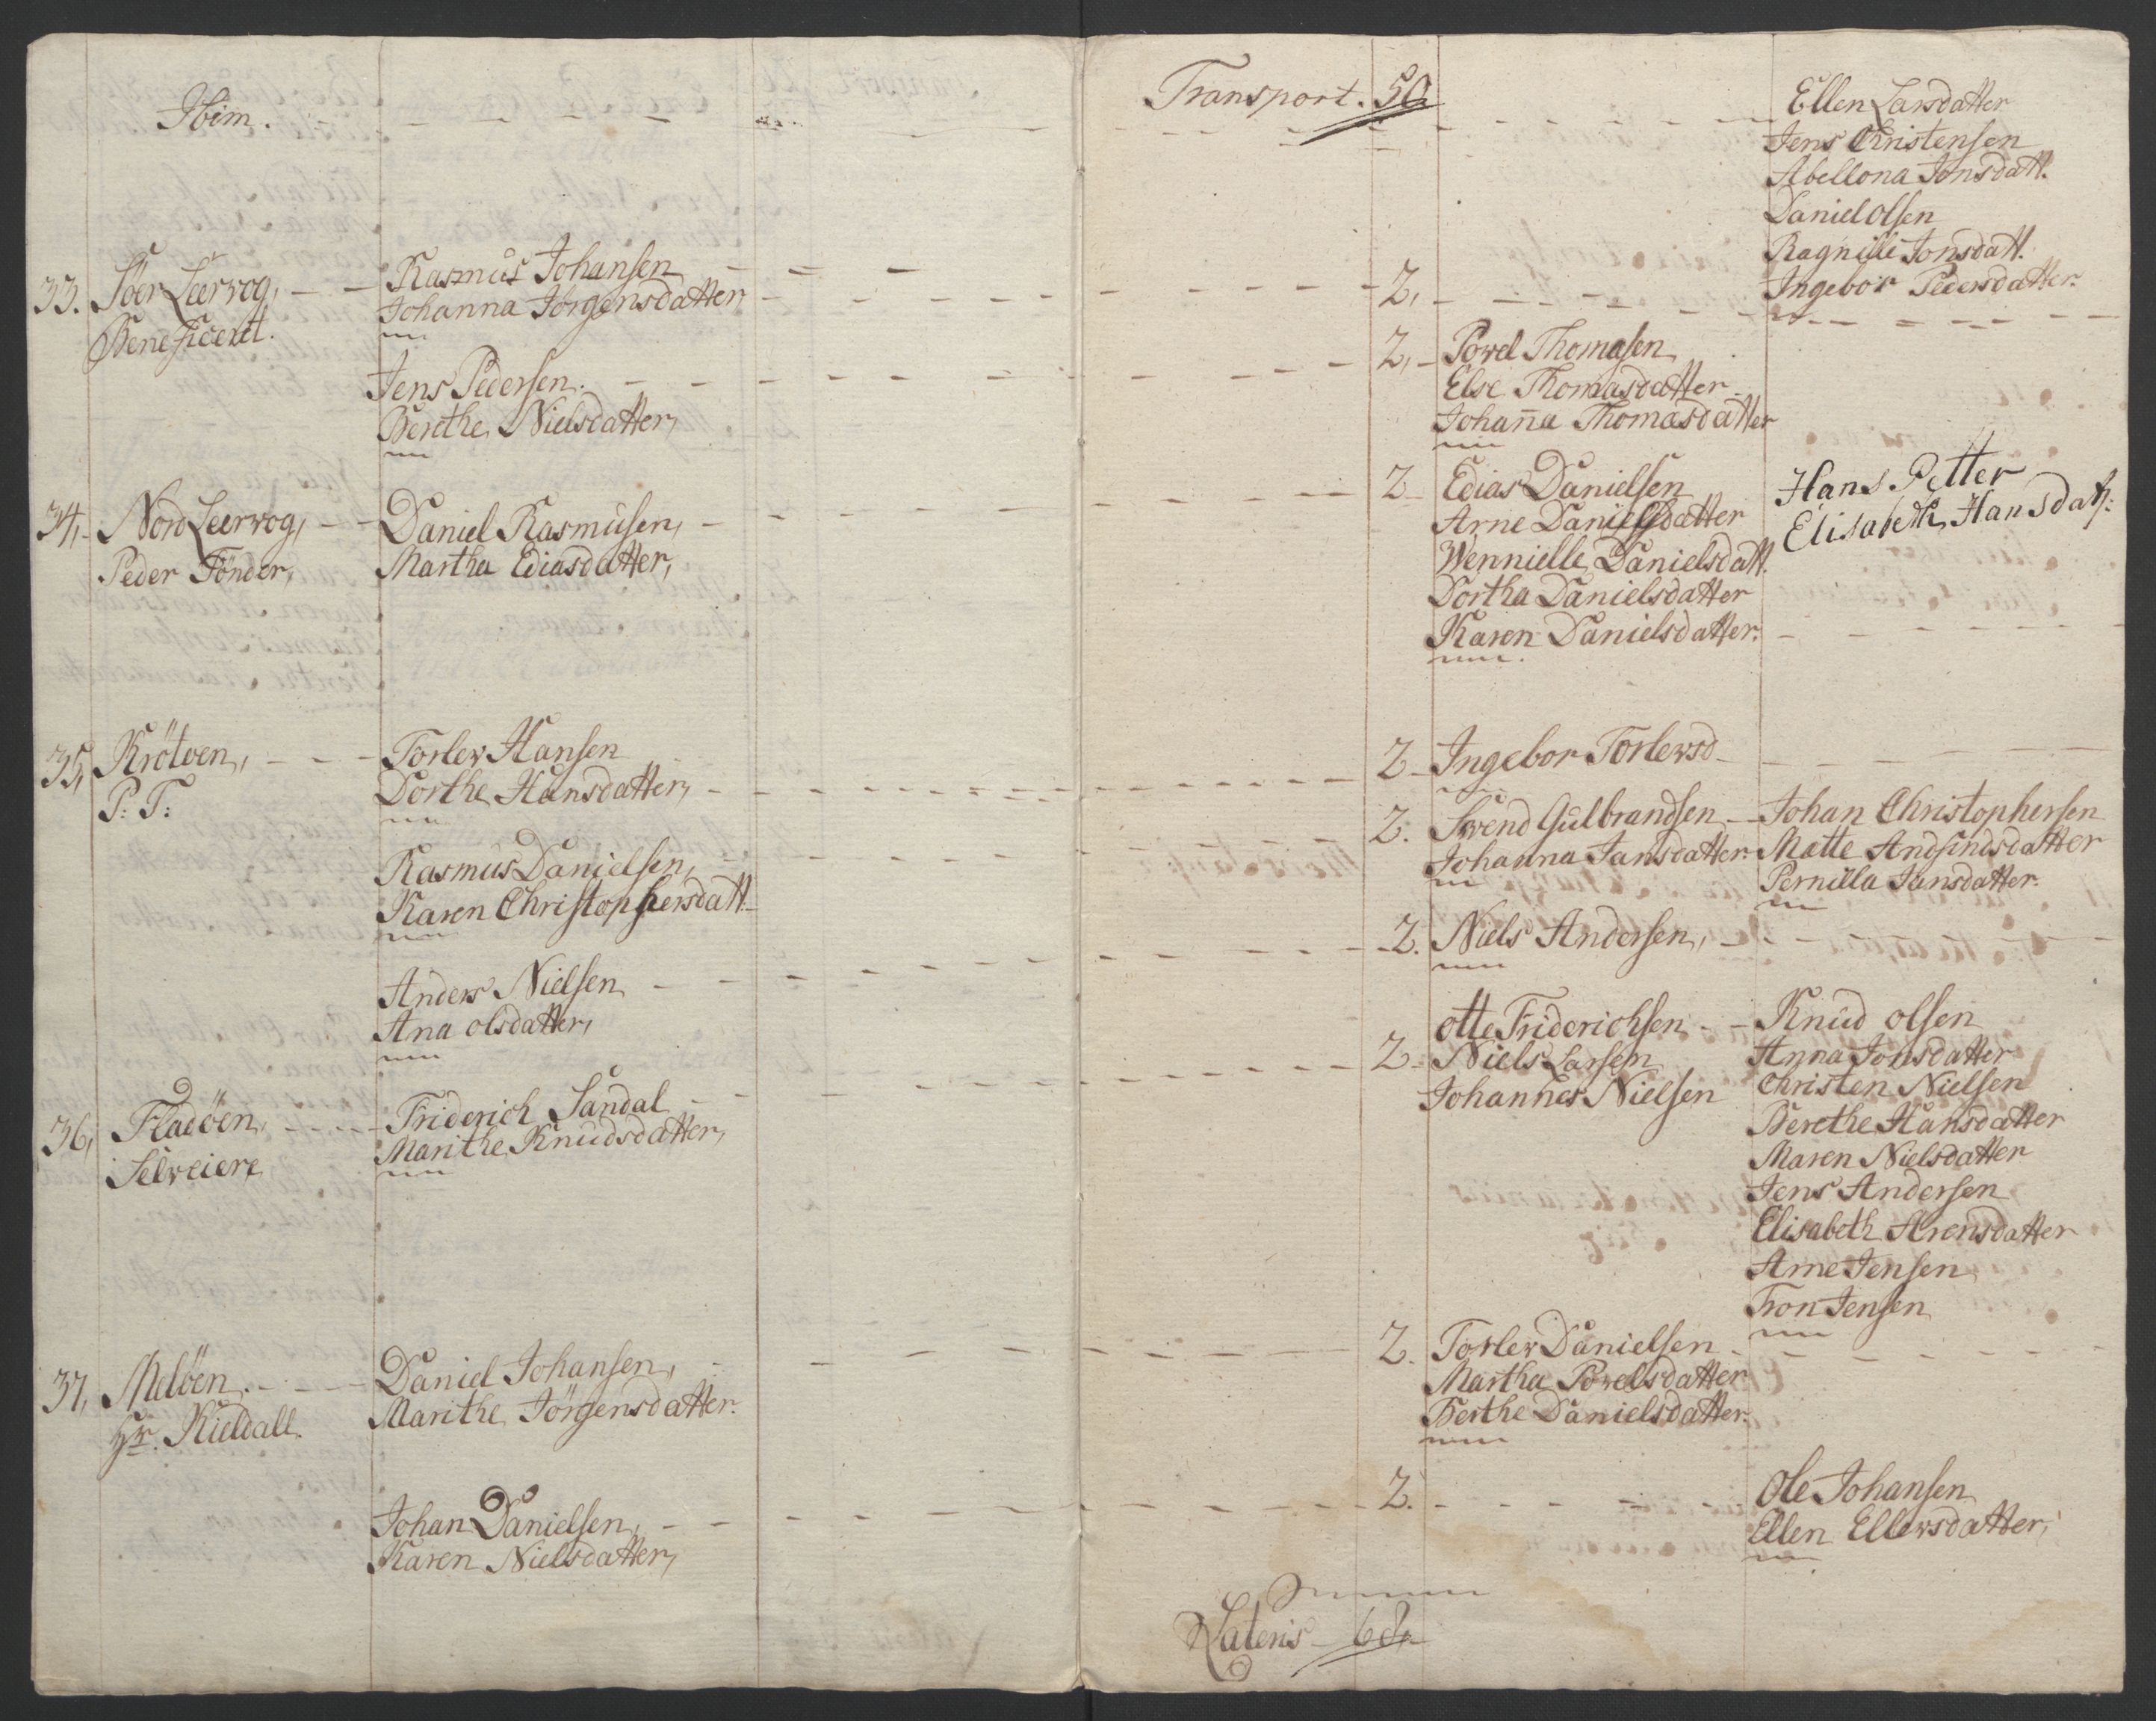 Ibim.
Transport. 50
Ellen Larsdatter
Jens Christensen
Abellona Jonsdatt.
Daniel Olsen
Ragnille Jonsdatt.
Ingebor Pedersdatter.
33. Söer Leervog,
Beneficeret.
Rasmus Johansen
Johanna Jörgensdatter,
2,
Jens Pedersen.
Berethe Nielsdatter,
2,
Povel Thomasen
Else Thomasdatter
Johan̄a Thomasdatter
34, Nord Leervog,
Peder Tönder,
Daniel Rasmusen,
Martha Ediasdatter,
2
Edias Danielsen
Arne Danielsdatter
Wennielle Danielsdatt.
Dortha Danielsdatter
Karen Danielsdatter.
Hans Petter
Elisabeth Hansdatr.
35, Krötöen,
P: T:
Torlev Hansen
Dorthe Hansdatter,
2
Ingebor Torlevsd
Rasmus Danielsen,
Karen Christophersdatt.
2.
Svend Gulbrandsen
Johanna Jansdatter.
Johan Christophersen
Matte Andfindsdatter
Pernilla Jansdatter.
Anders Nielsen
Ana Olsdatter,
2.
Niels Andersen,
36, Fladöen,
Selveiere
Friderich Sandal
Marithe Knudsdatter,
2
Otte Friderichsen
Niels Larsen
Johannes Nielsen
Knud Olsen
Anna Jonsdatter
Christen Nielsen
Berethe Hansdatter
Maren Nielsdatter
Jens Andersen
Elisabeth Arensdatter
Arne Jensen
Tron Jensen
37, Melöen.
Hr. Kieldall.
Daniel Johansen,
Marithe Jörgensdatter.
2.
Torlev Danielsen
Martha Povelsdatter
Berthe Danielsdatter.
Johan Danielsen,
Karen Nielsdatter,
2.
Ole Johansen
Ellen Ellevsdatter,
Lateris 68